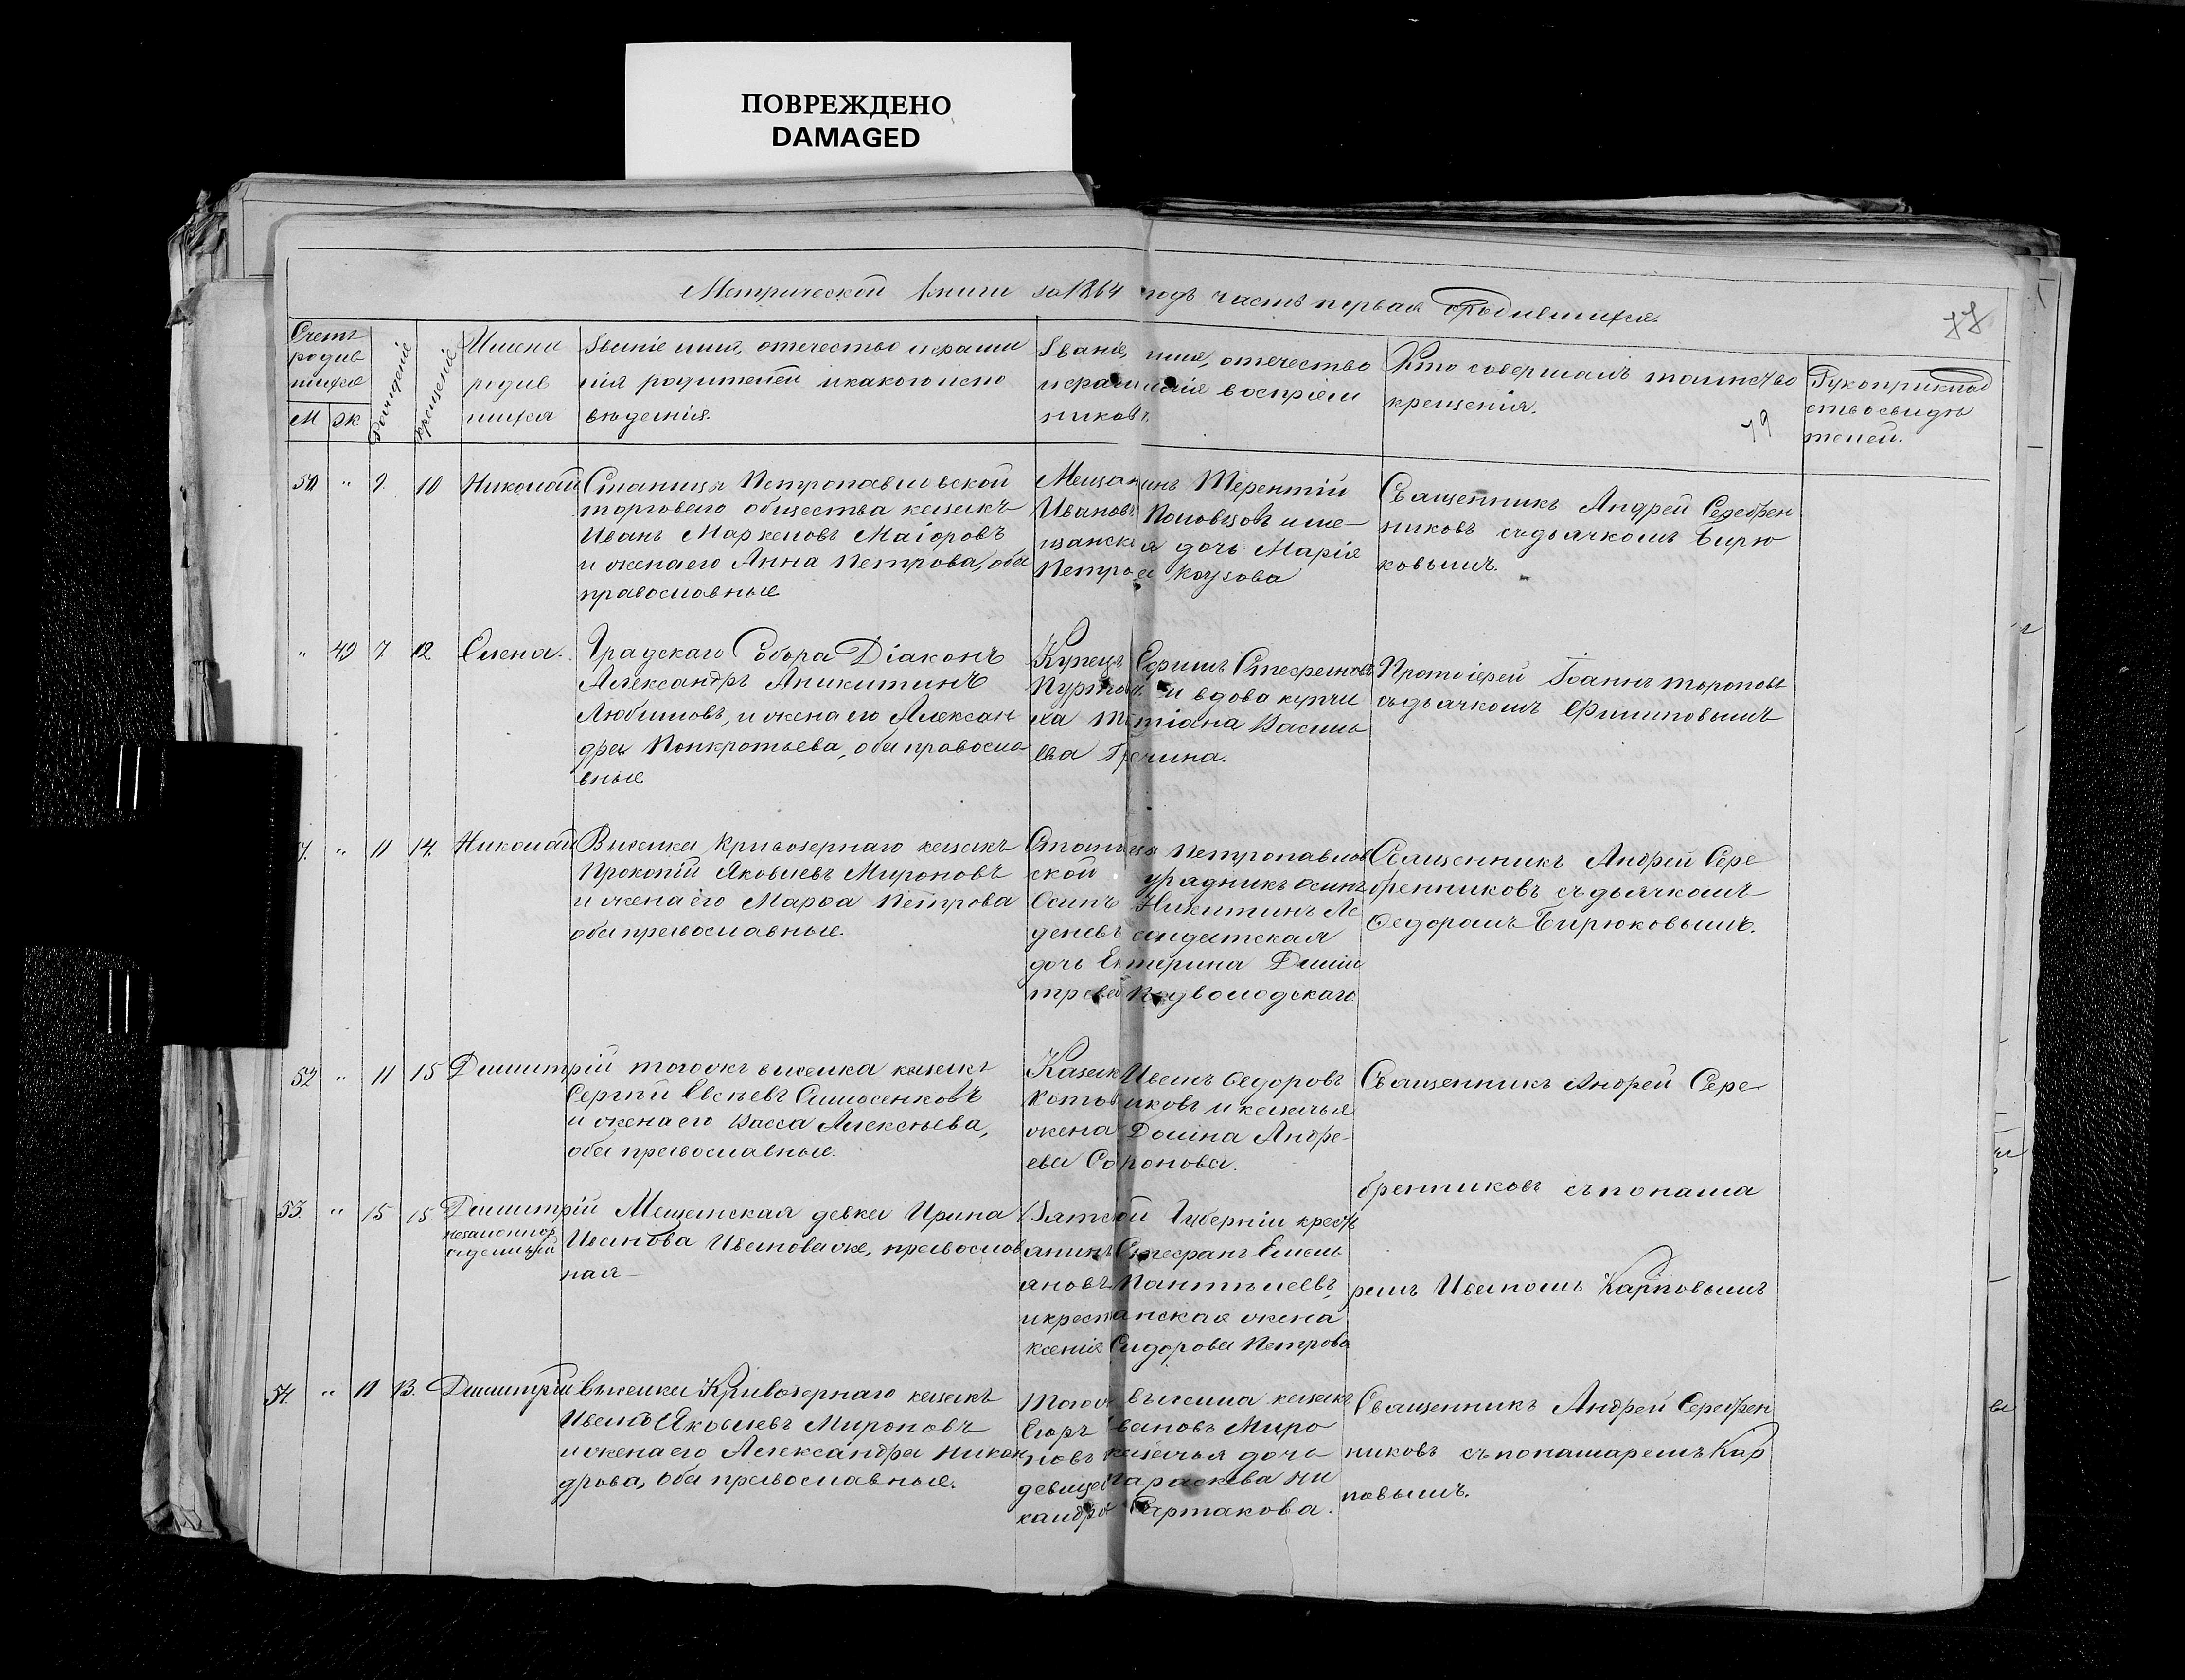 ПОВРЕЖДЕНО
DAMAGED
Метрической книги за 1864 годъ часть первая о родившихся.
Счетъ
родив
шихся
М Ж
Рожденiе
крещенiе
Имена
родив
шихся
Званiе имя, отечество и фами
лiя родителей и какого испо
вѣданiя.
Званiе, имя, отечество
и фамилiя воспрiем
никовъ.
Кто совершалъ таинство
крещенiя.
19
Рукоприклад
ство свидѣ
телей.
50 " 9. 10 Николай
Станицы Петропавловской
торговаго общества казакъ
Иванъ Маркеловъ Маiоровъ
и жена его Анна Петрова, оба
православные
Мещанинъ Терентiй
Ивановъ Половцовъ и ме-
щанская дочь Марiя
Петрова
Священникъ Андрей Серебрен
никовъ съ дьячкомъ Бирю
ковымъ.
" 49 7 12 Елена.
Градскаго Собора Дiаконъ
Александръ Аникитинъ
Любимовъ, и жена его Алексан
дра Понкротьева, оба правосла
вные
Купецъ Ефимъ Стефановъ
и вдова купчи
ха Татiана Василь
ева
Протоiерей Iоаннъ Тороповъ
съ дьячкомъ Филиповымъ
" 11 14. Николай
Выселка Кривозернаго казакъ
Прокопiй Яковлевъ Мироновъ
и жена его Марѳа Петрова
оба православные.
Станицы Петропавлов
ской урядникъ Осипъ
Осипъ Никитинъ Ле
деневъ солдатская
дочь Екатерина Дими
трева Подвологодскаго
Священникъ Андрей Сере
бренниковъ съ дьячкомъ
Ѳедоромъ Бирюковымъ.
52 " 11 15 Димитрiй
тогоже выселка казакъ
Сергѣй Евсѣевъ Симосенковъ
и жена его Васса Алексѣева,
оба православные.
Казакъ Иванъ Ѳедоровъ
Котовиковъ и казачья
жена Домна Андре-
ева Соронова.
Священникъ Андрей Сере
бренниковъ съ понама
ремъ Иваномъ Карповымъ
53. " 15 15 Димитрiй
незаконнор
ожденный
Мещанская девка Ирина
Иванова Ивановаже, православ
ная
Вятской Губернiи кресть
анинъ Стефанъ Емель
ановъ Пантѣлеевъ
и крестьанская жена
Ксенiя Сидорова Петрова
54. " 11 13. Димитрiй
выселка Кривозернаго казакъ
Иванъ Яковлевъ Мироновъ
и жена его Александра Никан
дрова, оба православные.
Тогоже выселка казакъ
Егоръ Ивановъ Миро
новъ казачья дочь
девица Параскева Ни
кандрова Сартакова.
Священникъ Андрей Серебрен
никовъ съ понамаремъ Кар
повымъ.